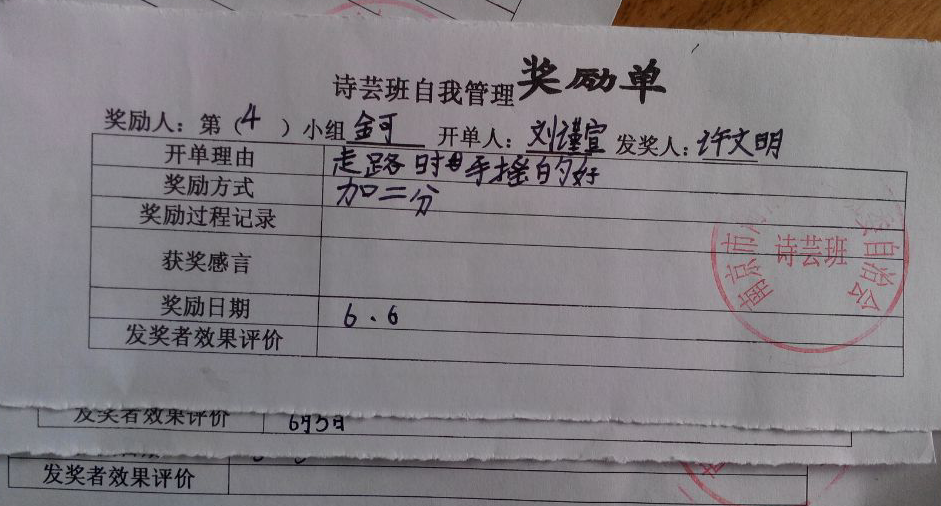 诗芸班自我管理奖励单
奖励人：第（4 ）小组 金可 开单人：刘谨宣 发奖人：许文明
开单理由 走路时手摇的好
奖励方式 加二分
奖励过程记录
获奖感言
奖励日期 6.6
发奖者效果评价
南京市
诗芸班
自治公
发奖者效果评价 6月3日
发奖者效果评价